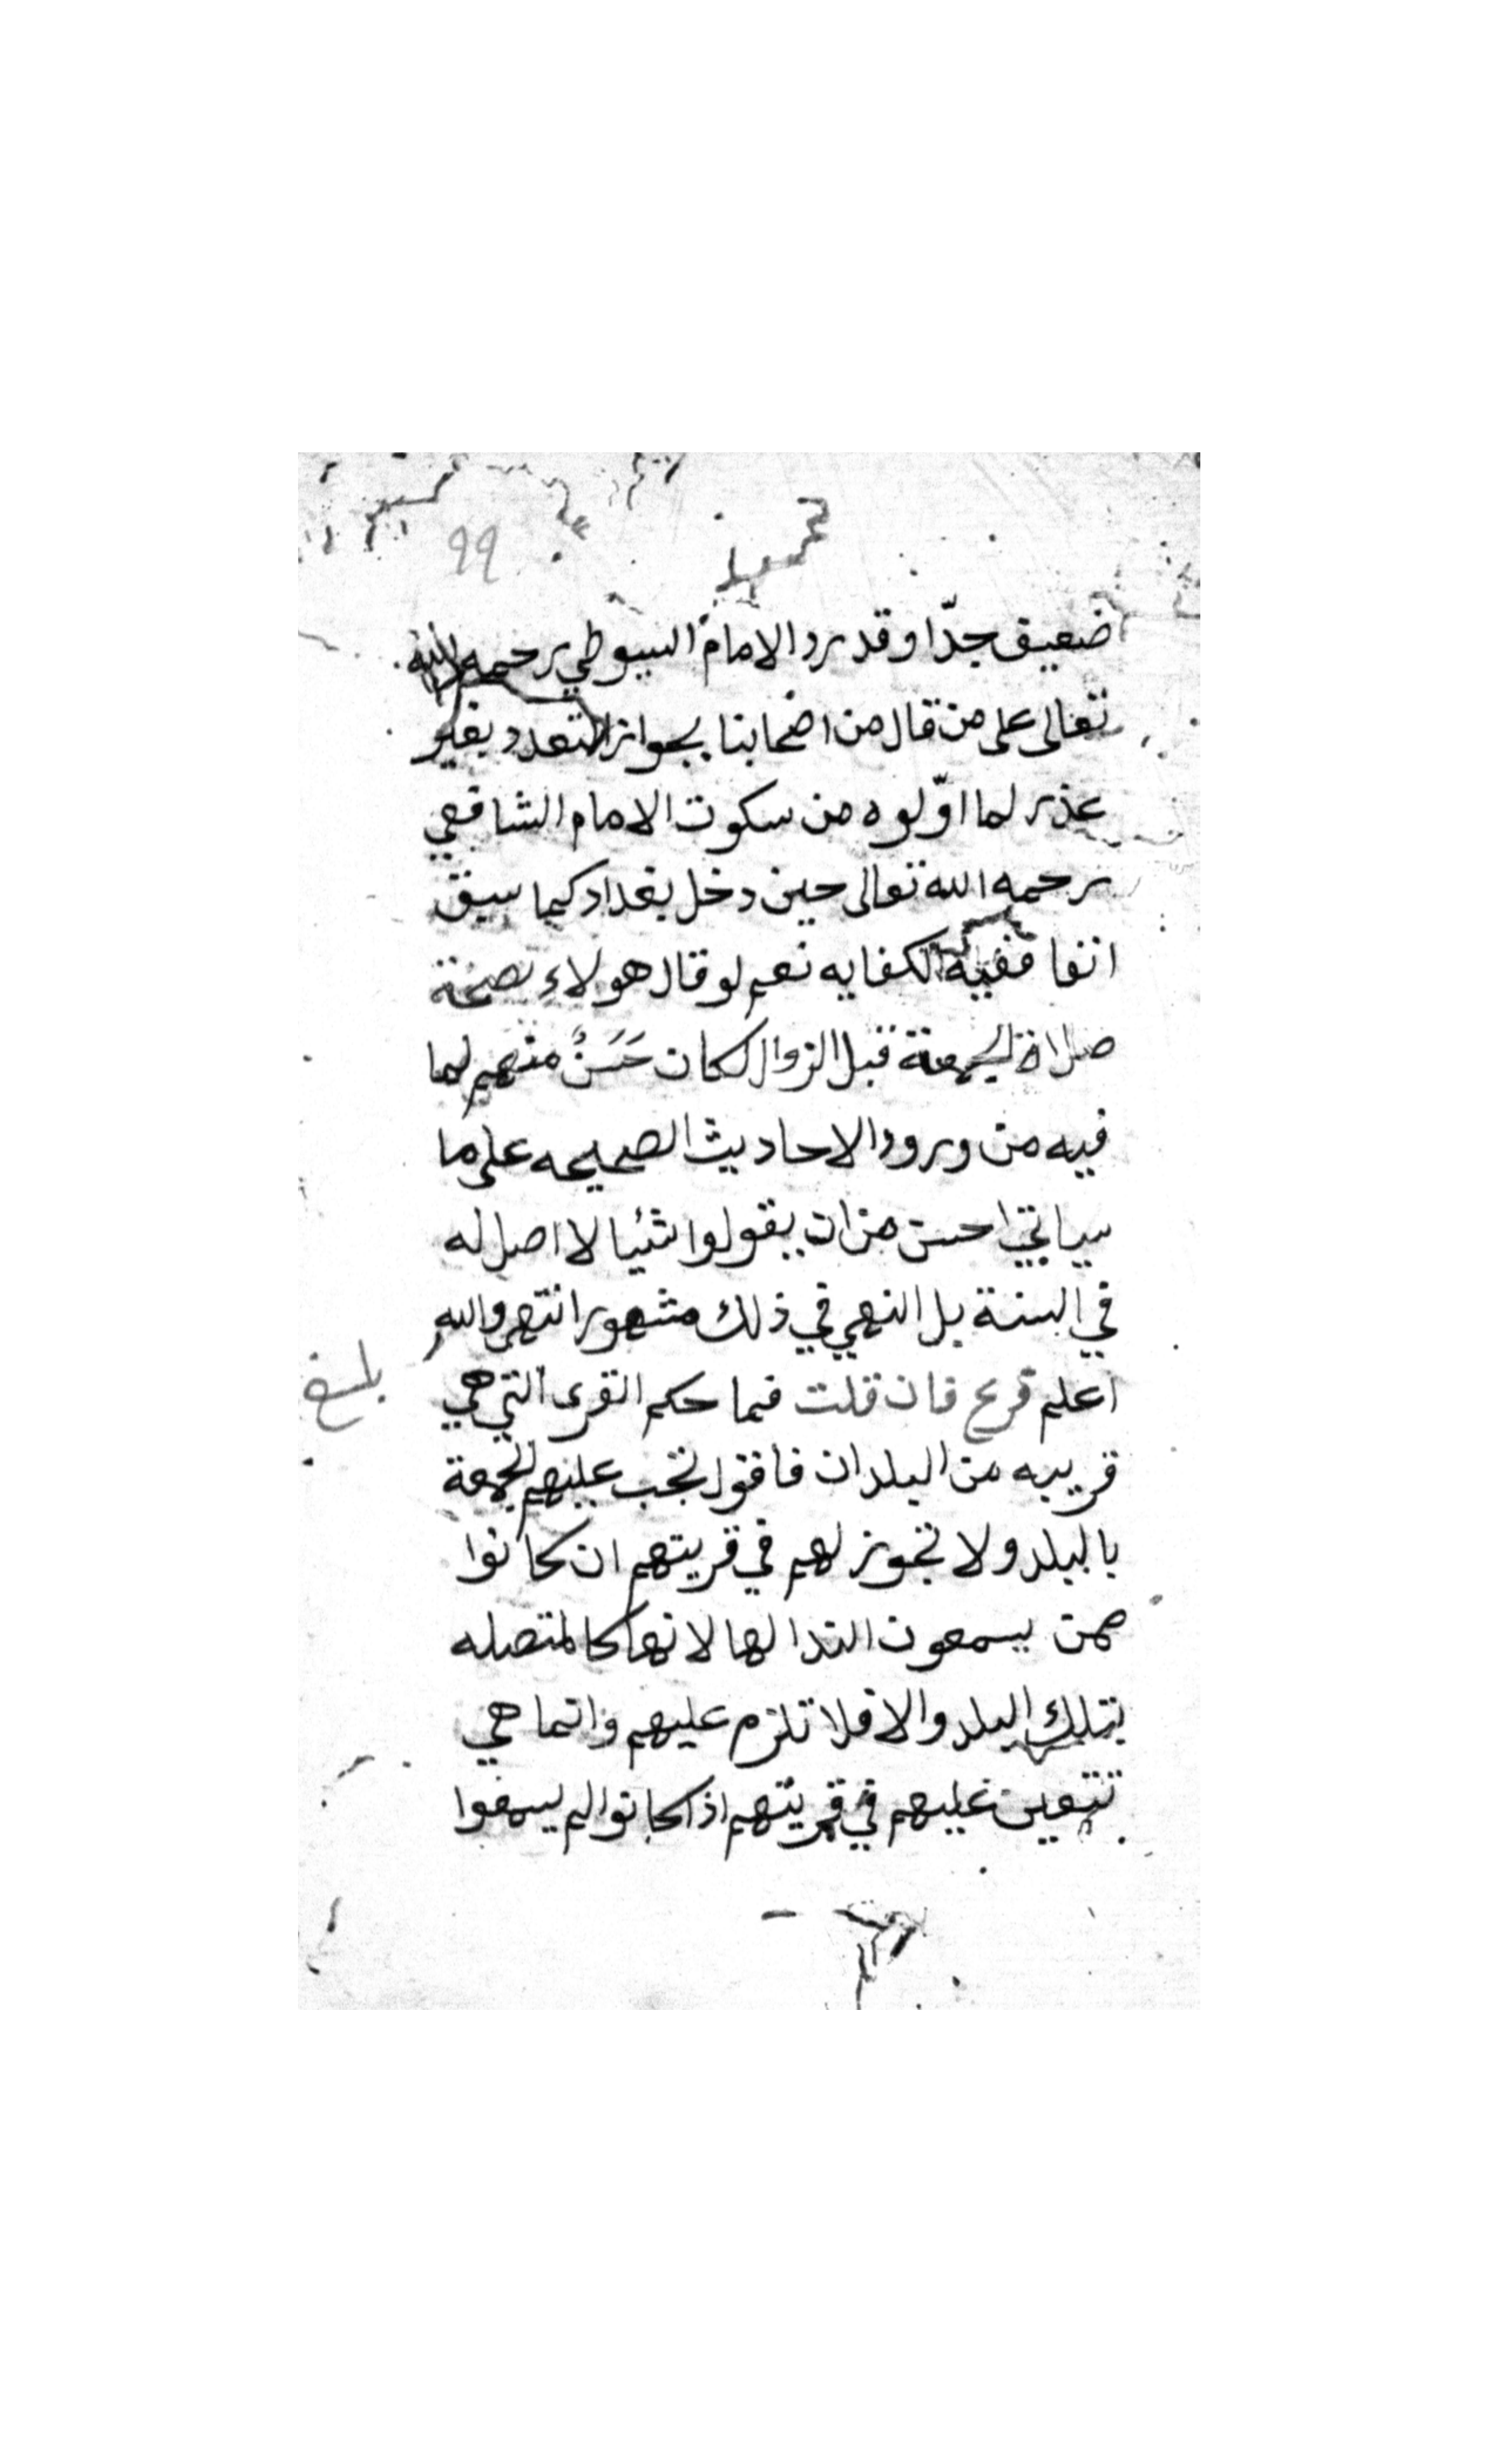 ٩٩
ضعيف جدّا وقد رد الامام السيوطي رحمه الله
تعالى على من قال من اصحابنا بجواز التعدد بغير
عذر لما اوّلوه من سكوت الامام الشافعي
رحمه الله تعالى حين دخل بغداد كما سبق
انفا ففيه الكفايه نعم لو قال هولاء بصحة
صلاة الجمعة قبل الزوال لكان حَسَنٌ منهم لما
فيه من ورود الاحاديث الصحيحه على ما
سياتي احسن من ان يقولوا شئيا لا اصل له
في السنة بل النهي في ذلك مشهور انتهى والله
اعلم فرع فان قلت فما حكم القرى التي هي
بلغ
قريبه من البلدان فاقول تجب عليهم الجمعة
بالبلد ولا تجوز لهم في قريتهم ان كانوا
ممن يسمعون الندا لها لانها كالمتصله
بتلك البلد والا فلا تلزم عليهم وانما هي
تتعين عليهم في قريتهم اذا كانوا لم يسمعوا